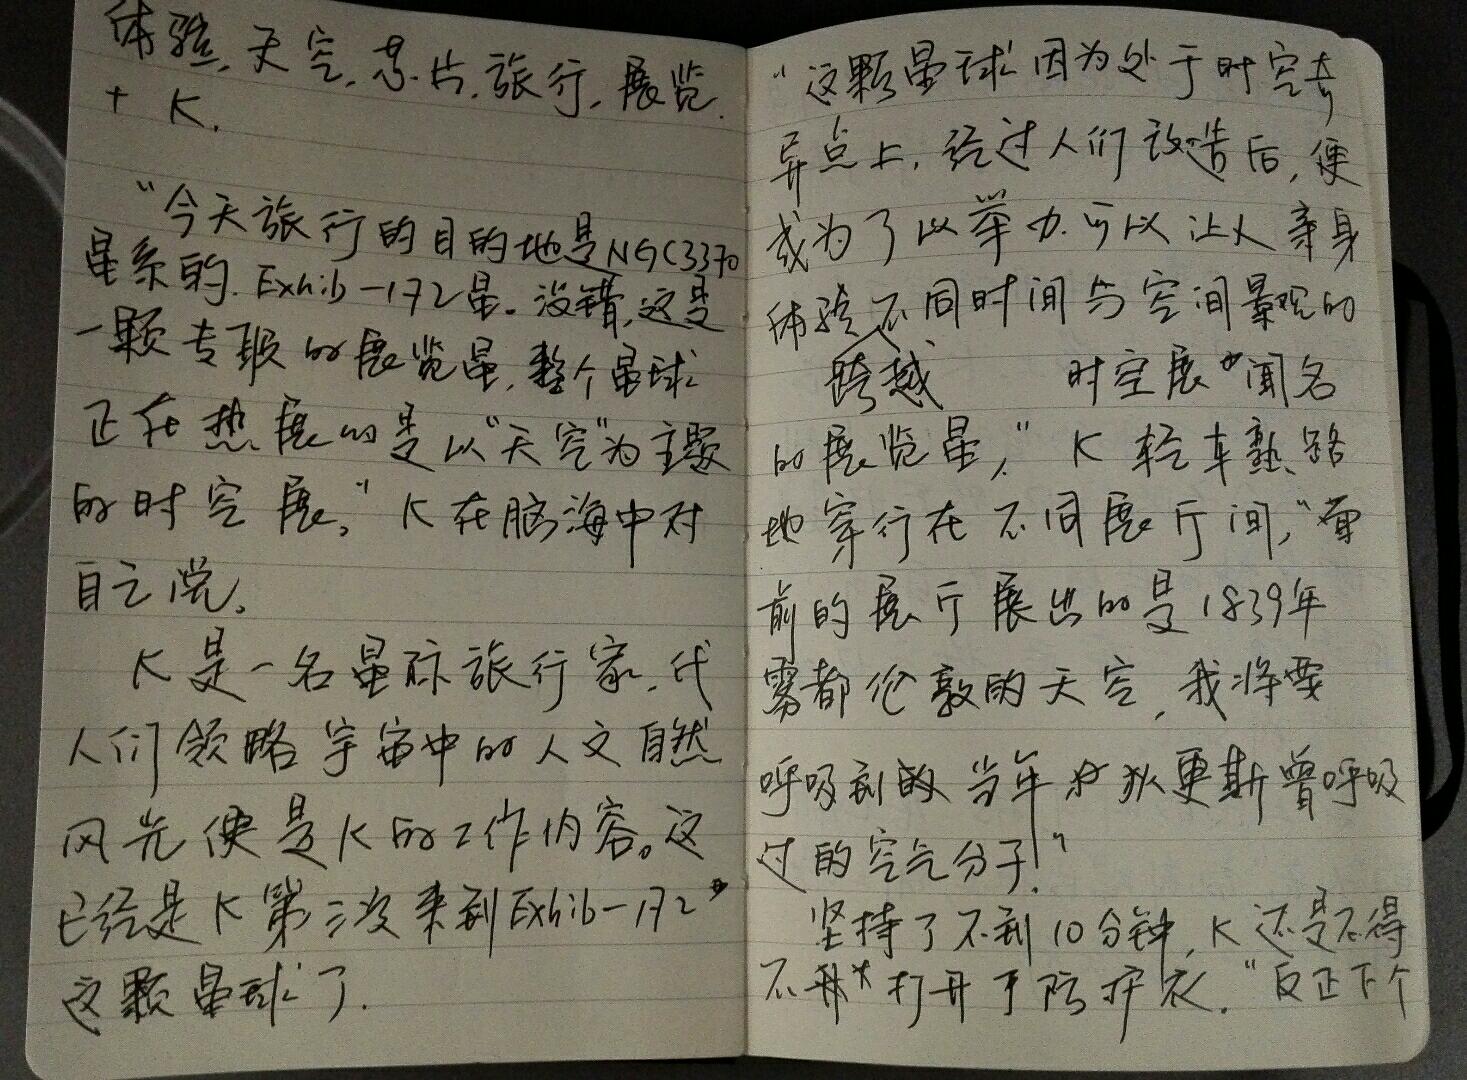 体验,天空,芯片,旅行,展览.
+ K.
“今天旅行的目的地是NGC3370
星系的Exhib-172星。没错,这是
一颗专职的展览星,整个星球
正在热展的是以“天空”为主题
的时空展。”K在脑海中对
自己说。
K是一名星际旅行家,代
人们领略宇宙中的人文自然
风光便是K的工作内容。这
已经是K第三次来到Exhib-172
这颗星球了.
“这颗星球因为处于时空奇
异点上,经过人们改造后,便
成为了以举办可以让人亲身
体验不同时间与空间景观的
跨越 时空展 闻名
的展览星,”K轻车熟路
地穿行在不同展厅间,“当
前的展厅展出的是1839年
雾都伦敦的天空,我将要
呼吸到的当年狄更斯曾呼吸
过的空气分子!”
坚持了不到10分钟,K还是不得
不打开了防护衣.“反正下个